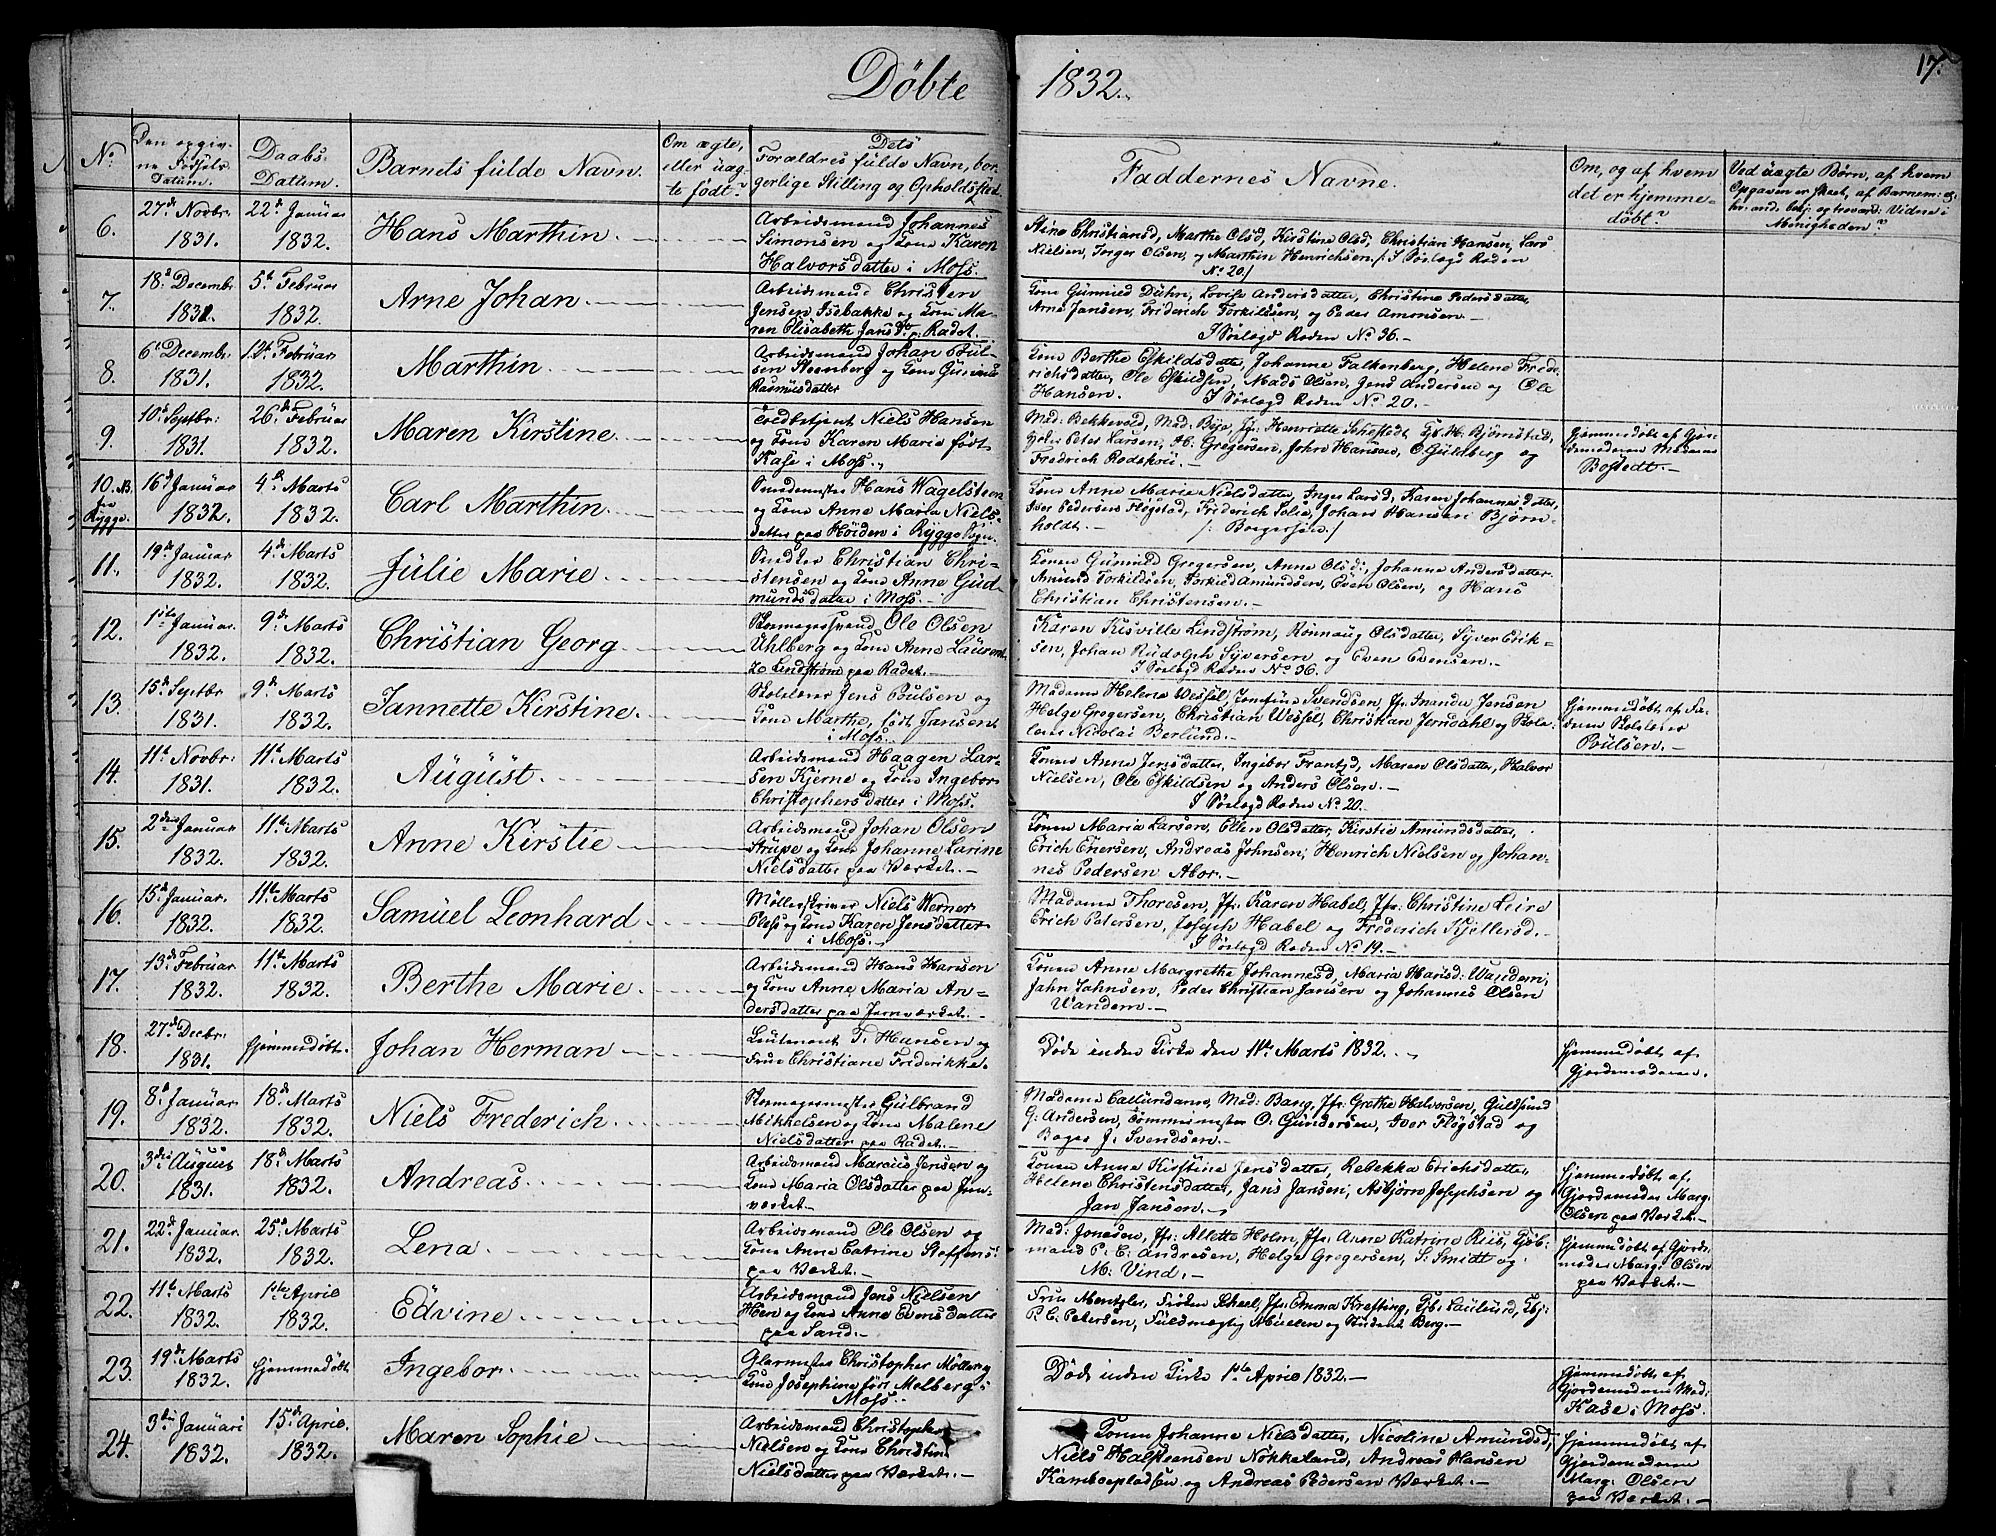 Döbte 1832.
17.
No
Den opgiv-
ne Födsels
Datum.
Daabs-
Datum.
Barnets fulde Navn.
Om ægte,
eller uæg-
te født?
Dets
Forældres fulde Navn, bor-
gerlige Stilling og Opholdssted.
Faddernes Navne.
Om, og af hvem
det er hjemme-
döbt?
Ved uægte Børn, af hvem
Opgaven er skeet, af Barnem:
Menigheden?
6.
27de Novbr:
1831.
22de Januar
1832.
Hans Marthin
Arbeidsmand Johannes
Simonsen og Kone Karen
Halvorsdatter i Moss.
Stine Christiansd, Marthe Olsd, Kirstine Olsd, Christian Hansen, Lars
Nielsen, Torger Olsen, og Marthin Henrichsen /: I Sörlogs Roden
No 20./
7.
18de Decembr
1831.
5te Februar
1832.
Arne Johan
Arbeidsmand Christen
Jensen Isebakke og Kone Ma-
ren Elisabeth Jansdr p: Radet.
Kone Gunnild Duhn, Lovise Andersdatter, Christine Pedersdatter,
Arne Jansen, Friderich Torkildsen, og Peder Amonsen.
I Sörlogs Roden No 36.
8.
6te Decembr:
1831.
12te Februar
1832.
Marthin
Arbeidsmand Johan Poul-
sen Steenberg og Kone
Rasmusdatter
Kone Berthe Eskildsdatter, Johanne Falkenberg, Helene Fride-
richsdatter, Ole Eskildsen, Mads Olsen, Jens Andersen og Ole
Hansen. I Sörlogs Roden No 20.
9.
10de Septbr:
1831.
26de Februar
1832.
Maren Kirstine
Toldbetjent Niels Hansen
og Kone Karen Marie født
Kase i Moss.
Mad: Bekkevold, Mad. Bye, Jfr: Henriette Sehestedt, H. Björnstad,
Peter Larsen, H. Gregersen, John Hansen, O. Guldberg og
Fredrich Rodskou.
Hjemmedöbt af
Bostedt.
10. NB
fra
Rygge.
16de Januar
1832.
4de Marts
1832.
Carl Marthin
Snedkemester Hans Wagelsteen
og Kone Anne Maria Niels-
datter paa Höiden i Rygge Sogn.
Kone Anne Marie Nielsdatter, Inger Larsd, Karen Johannesdatter,
Iver Pedersen Flögstad, Friderich Solie, Johan Hansen Björn-
holdt. /: Borgersöen./
11.
19de Januar
1832.
4de Marts
1832.
Julie Marie
Snedker Christian Chri-
stensen og Kone Anne Gud-
mundsdatter i Moss.
Konen Gunnild Gregersen, Anne Olsd, Johanne Andersdatter,
Amund Torkildsen, Torkild Amundsen, Even Olsen, og Hans
Christian Christensen.
12.
1ste Januar
1832.
9de Marts
1832.
Christian Georg
Skomagersvend Ole Olsen
Uhlberg og Kone Anne Laurent-
ze Lindström paa Radet.
Karen Kisville Lindström, Rönnaug Olsdatter, Syver Erik-
sen, Johan Rudolph Syversen og Even Evensen.
I Sörlogs Roden No 36.
13.
15de Septbr
1831.
9de Marts
1832.
Jannette Kirstine
Skolelærer Jens Poulsen og
Kone Marthe, født Jansen
i Moss.
Madame Helena Wessel, Josefine Svendsen, Jfr: Inander Jensen
Helge Gregersen, Christian Wessel, Christian Jerndahl og Skole-
lærer Nicolai Berlund.
Hjemmedöbt af Fa-
deren Skolelærer
Poulsen.
14.
11te Novbr:
1831.
11te Marts
1832.
August
Arbeidsmand Haagen Lar-
sen Kjerne og Kone Ingebor
Christophersdatter i Moss.
Konen Anne Jensdatter, Ingebor Frantzd, Maren Olsdatter, Halvor
Nielsen, Ole Eskildsen og Anders Olsen.
I Sörlogs Roden No 20.
15.
2den Januar
1832.
11te Marts
1832.
Anne Kirstie
Arbeidsmand Johan Olsen
Strupe og Kone Johanne Larine
Nielsdatter paa Værket.
Konen Maria Larsen, Ellen Olsdatter, Kirstie Amundsdatter,
Erich Enersen, Andreas Johnsen, Henrich Nielsen og Johan-
nes Pedersen Abor.
16.
15de Januar.
1832.
11te Marts
1832.
Samuel Leonhard
Möllerskriver Niels Werner
Ploss og Kone Karen Jensdatter
i Moss.
Madame Thoresen, Jfr: Karen Habel, Jfr: Christine Leire
Erich Petersen, Joseph Habel og Frederich Kjelleröd.
I Sörlogs Roden No 19.
17.
13de Februar
1832.
11te Marts
1832.
Berthe Marie
Arbeidsmand Hans Hansen
og Kone Anne Maria An-
dersdatter paa Jernværket.
Konen Anne Margrethe Johannesd, Maria Hansd: Vandem,
Jahn Jahnsen, Peder Christian Jansen og Johannes Olsen
Vandem.
18.
27de Decbr:
1831.
Hjemmedöbt.
Johan Herman
Leutenant F. Hansen og
Frue Christiane Friderikke.
Döde inden Kirke den 11te Marts 1832.
Hjemmedöbt af
Gjordemoderen.
19.
8de Januar
1832.
18de Marts
1832.
Niels Frederich
Skomagermester Gulbrand
Mikkelsen og Kone Malene
Nielsdatter paa Radet.
Madame Callundan, Mad: Bang, Jfr: Grethe Halvorsen, Guldsmed
G: Andersen, Tömmermester O. Gundersen, Iver Flögstad og
Bager J. Svendsen.
20.
3die August
1831.
18de Marts
1832.
Andreas
Arbeidsmand Marcus Jensen og
Kone Maria Olsdatter paa Jern-
værket.
Konen Anne Kirstine Jensdatter, Rebekka Erichsdatter,
Helene Christensdatter, Jans Jansen, Asbjørn Josephsen og
Jan Jansen.
Hjemmedöbt af
Gjordemoder Marg:
Olsen paa Værket.
21.
22de Januar
1832.
25de Marts
1832.
Lena
Arbeidsmand Ole Olsen og
Kone Anne Catrine Steffens:
paa Værket.
Mad: Jonsen, Jfr: Allette Holm, Jfr: Anne Katrine Riis, Kjöb-
mand P. C. Andresen, Helge Gregersen, S. Smidt og
M: Vind.
Hjemmedöbt af Gjorde-
moder Marg. Olsen
paa Værket.
22.
11te Marts
1832.
1ste April
1832.
Edvine
Arbeidsmand Jens Nielsen
Hoen og Kone Anne Evensdatter
paa Sand.
Frue Mentzler, Fröken Scheel, Jfr: Emma Krefting, Kjb: Laulund, Kbj:
P. C. Petersen, Fuldmægtig Muelen og Student Berg.
23.
19de Marts
1832.
Hjemmedöbt
Ingebor
Glarmester Christopher Möller og
Kone Josephine født Melberg i
Moss.
Döde inden Kirke 1ste April 1832.
Hjemmedöbt af
Gjordemoderen Mad:
Kase i Moss.
24.
3die Januari
1832.
15de April.
1832.
Maren Sophie
Arbeidsmand Christopher
Nielsen og Kone Christine
Nielsdatter paa Værket.
Konen Johanne Nielsdatter, Nicoline Amundsd,
Niels Halsteensen Nökkeland, Andreas Hansen
Kamboepladsen og Andreas Pedersen Værket.
Hjemmedöbt af
Gjordemoderen
Marg: Olsen
paa Værket.